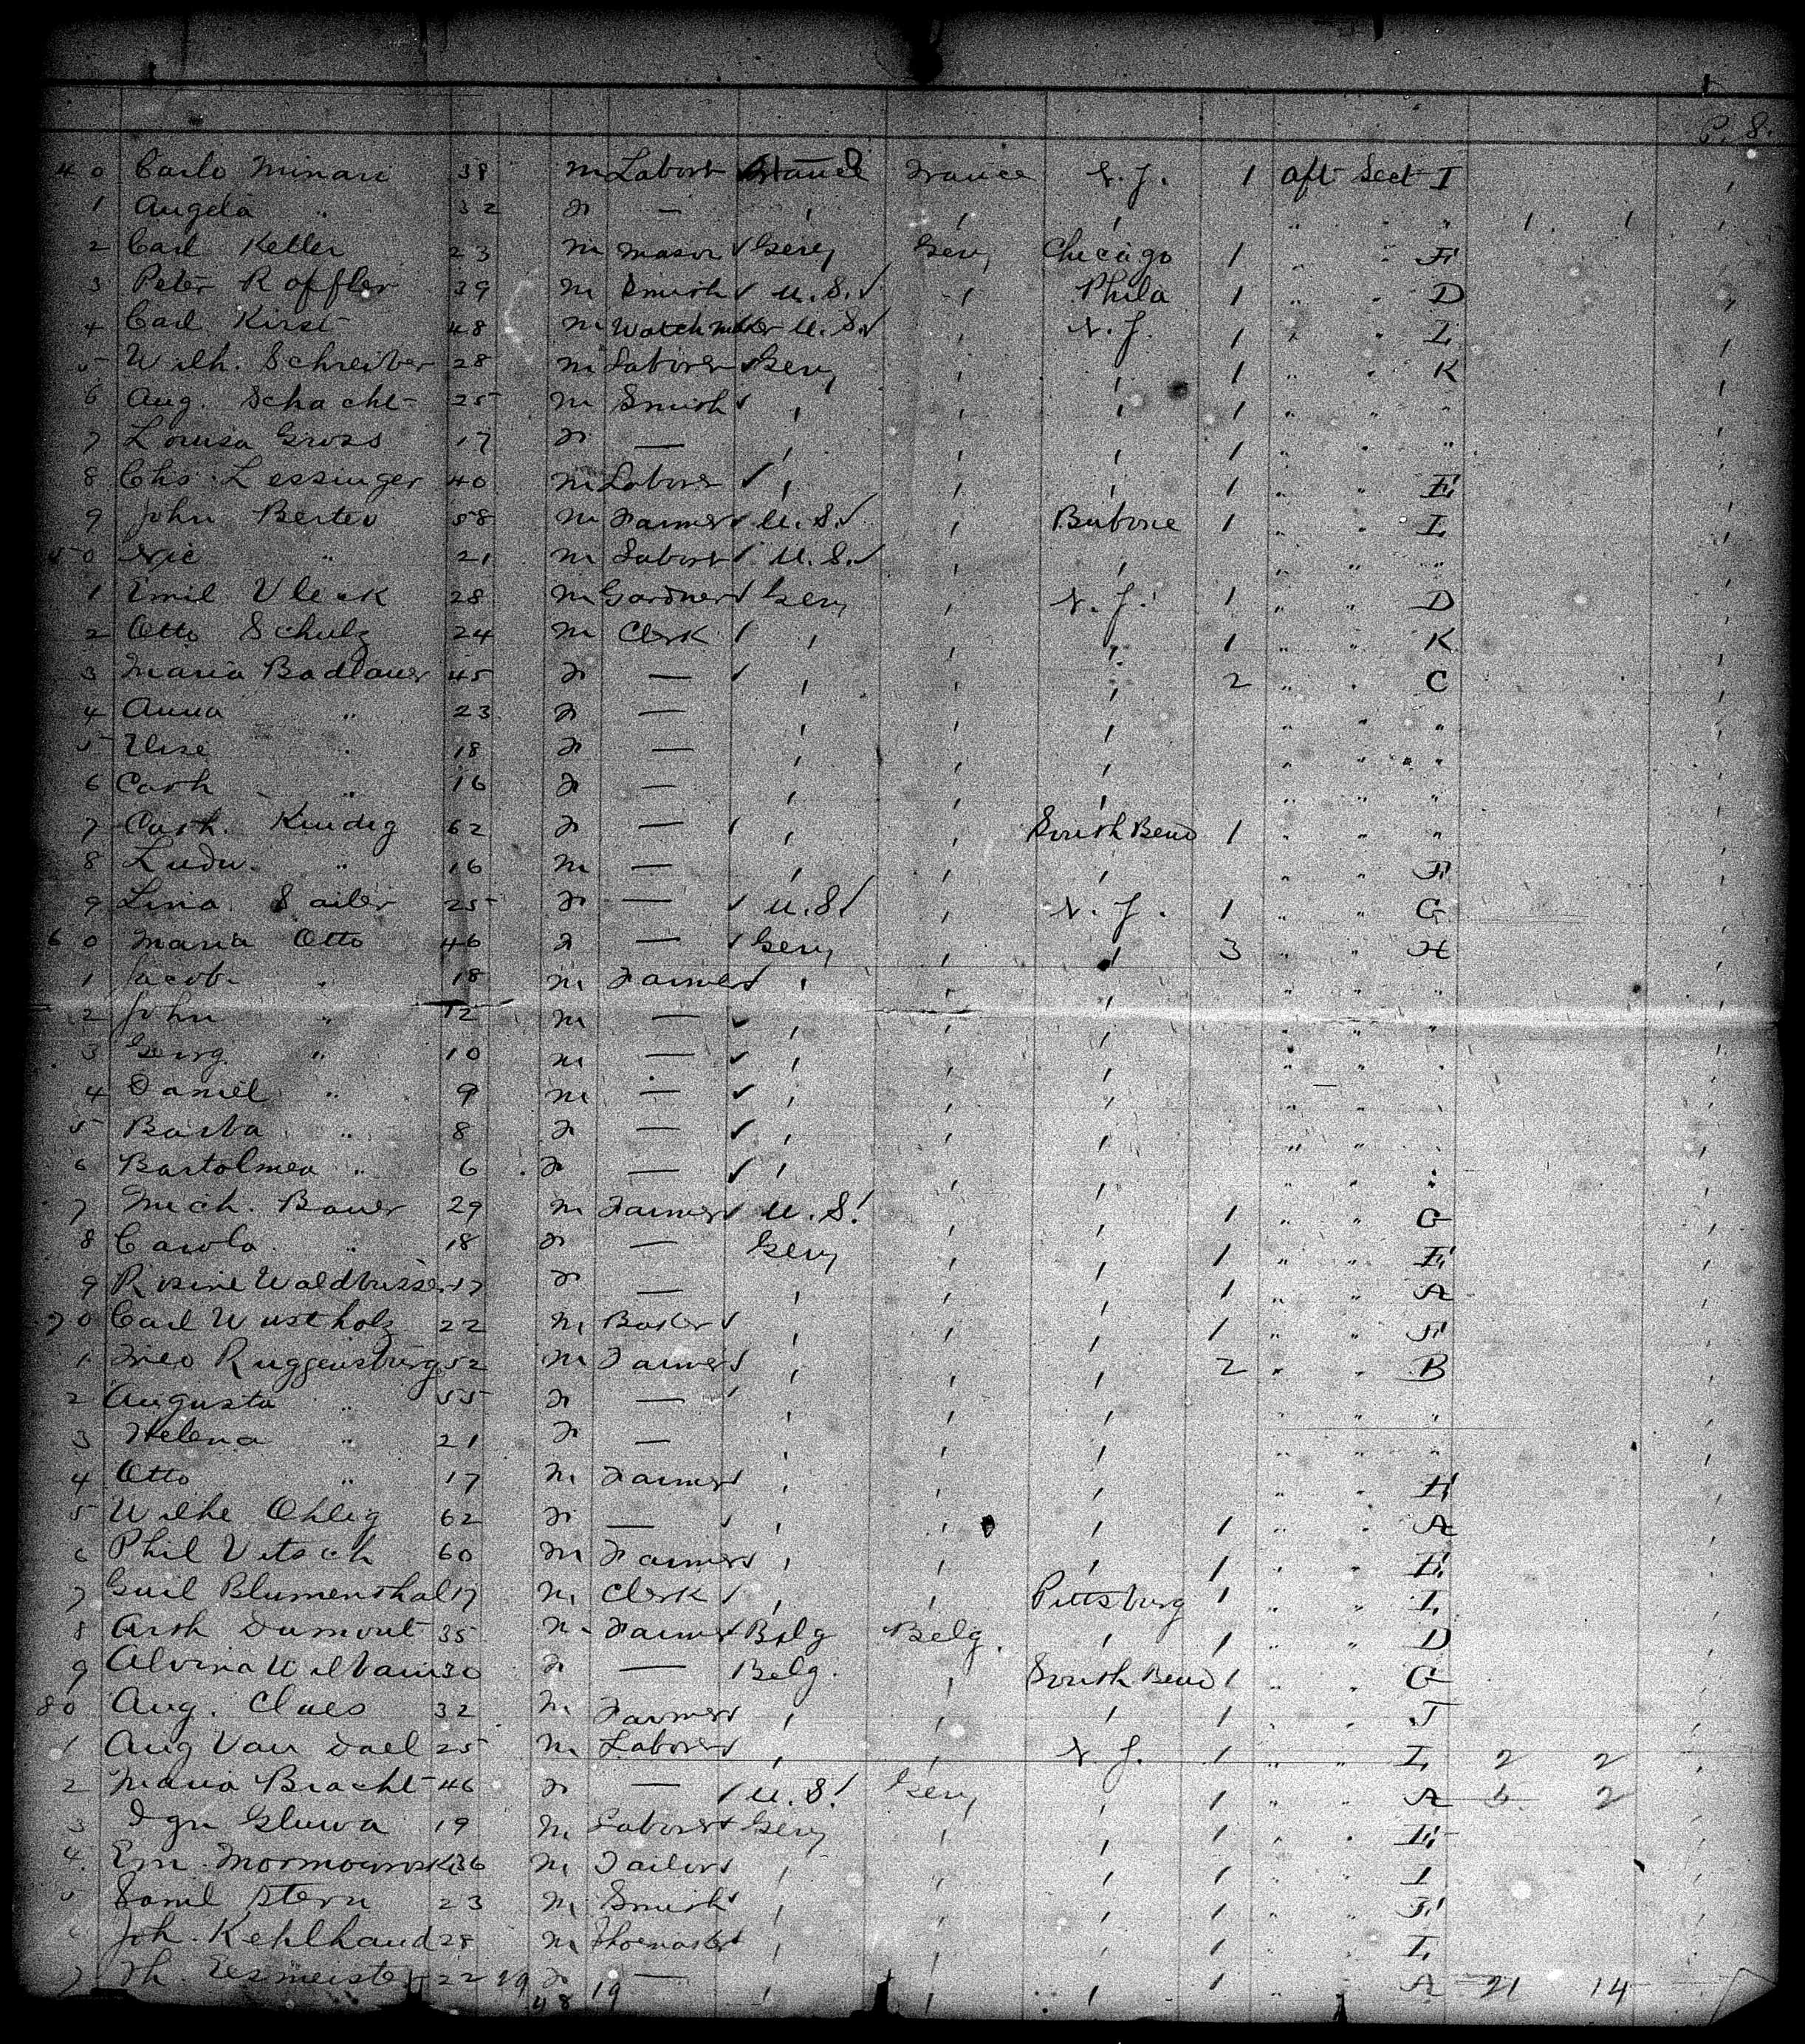 P. 8.
40 Carlo Minari 38 m Labor France N. Y. 1 aft Sect I
1 Angela " 32 f — " " "
2 Carl Keller 23 m Mason ✓ Gery Gery Chicago 1 " " F
3 Peter Roffler 39 m Smith ✓ U.S. ✓ " Phila 1 " " D
4 Carl Kirst 48 m Watchmaker U.S. ✓ " N. Y. 1 " " I
5 Wilh. Schreiber 28 m Laborer ✓ Gery " " 1 " " K
6 Aug. Schacht 25 m Smith ✓ " " " 1 " " "
7 Louisa Gross 17 f — " " " 1 " " "
8 Chs. Lessinger 40 m Laborer ✓ " " " 1 " " E
9 John Berteo 58 m Farmer ✓ U.S. ✓ " 1 " " I
50 Nic " 21 m Labor ✓ U.S. ✓ " " " " "
1 Emil Vleck 28 m Gardner ✓ Gery " N. Y. 1 " " D
2 Otto Schulz 24 m Clerk ✓ " " " 1 " " K
3 Maria Badlauer 45 f — ✓ " " " 2 " " C
4 Anna " 23 f — " " " " " "
5 Elise " 18 f — " " " " " "
6 Cath " 16 f — " " " " " "
7 Cath. Kindig 62 f — ✓ " " South Bend 1 " " "
8 Ludw. " 16 m — " " " " " F
9 Lina Sailer 25 f — ✓ U.S. ✓ " N. Y. 1 " " G
60 Maria Otto 46 f — ✓ Gery " " 3 " " H
1 Jacob " 18 m Farmer ✓ " " " " " "
2 John " 12 m — ✓ " " " " " "
3 Georg " 10 m — ✓ " " " " " "
4 Daniel " 9 m — ✓ " " " " " "
5 Barba " 8 f — ✓ " " " " " "
6 Bartolmea " 6 f — ✓ " " " " " "
7 Mich. Bauer 29 m Farmer ✓ U.S. ✓ " " 1 " " G
8 Carola " 18 f — Gery " " 1 " " E
9 Rosine Waldbusser 17 f — " " " 1 " " A
70 Carl Wustholz 22 m Baker ✓ " " " 1 " " F
1 Ruggensburg 52 m Farmer ✓ " " " 2 " " B
2 Augusta " 55 f — ✓ " " " " " "
3 Helena " 21 f — " " " " " "
4 Otto " 17 m Farmer ✓ " " " " " H
5 Wilhe Ohlig 62 f — ✓ " " " 1 " " A
6 Phil Vetsch 60 m Farmer ✓ " " " 1 " " E
7 Guil Blumenthal 17 m Clerk ✓ " " Pittsburg 1 " " I
8 Arth Dumont 35 m Farmer ✓ Belg Belg. " 1 " " D
9 Alvina 30 f — Belg. " South Bend 1 " " G
80 Aug. Claes 32 m Farmer ✓ " " " 1 " " J
1 Aug Van Dael 25 m Laborer ✓ " " N. Y. 1 " " I 2 2
2 Maria Bracht 46 f — ✓ U.S. ✓ Gery " 1 " " A 2
3 Ign Gluwa 19 m Laborer ✓ Gery " " 1 " " E
4 Em. Mormowski 36 m Tailor ✓ " " " 1 " " I
5 Saml Stern 23 m Smith ✓ " " " 1 " " F
6 Joh. Kehlhaud 28 m Shoemaker ✓ " " " 1 " " I
7 Th. 22 f — " " " 1 " " A 21 14
48 19